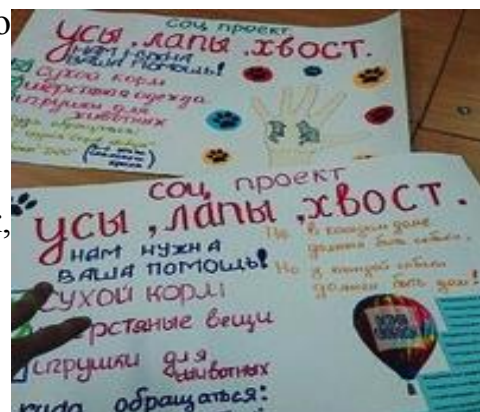 Соц проект
усы, лапы, хвост.
НАМ НУЖНА
ВАША ПОМОЩЬ!
Сухой корм
шерстяная одежда
игрушки для
животных
соц проект
усы, лапы, хвост.
НАМ НУЖНА
ВАША ПОМОЩЬ!
СУХОЙ КОРМ
шерстяные вещи
игрушки для
животных
куда обращаться:
Не в каждом доме
должна быть собака,
Но у каждой собаки
должен быть дом!